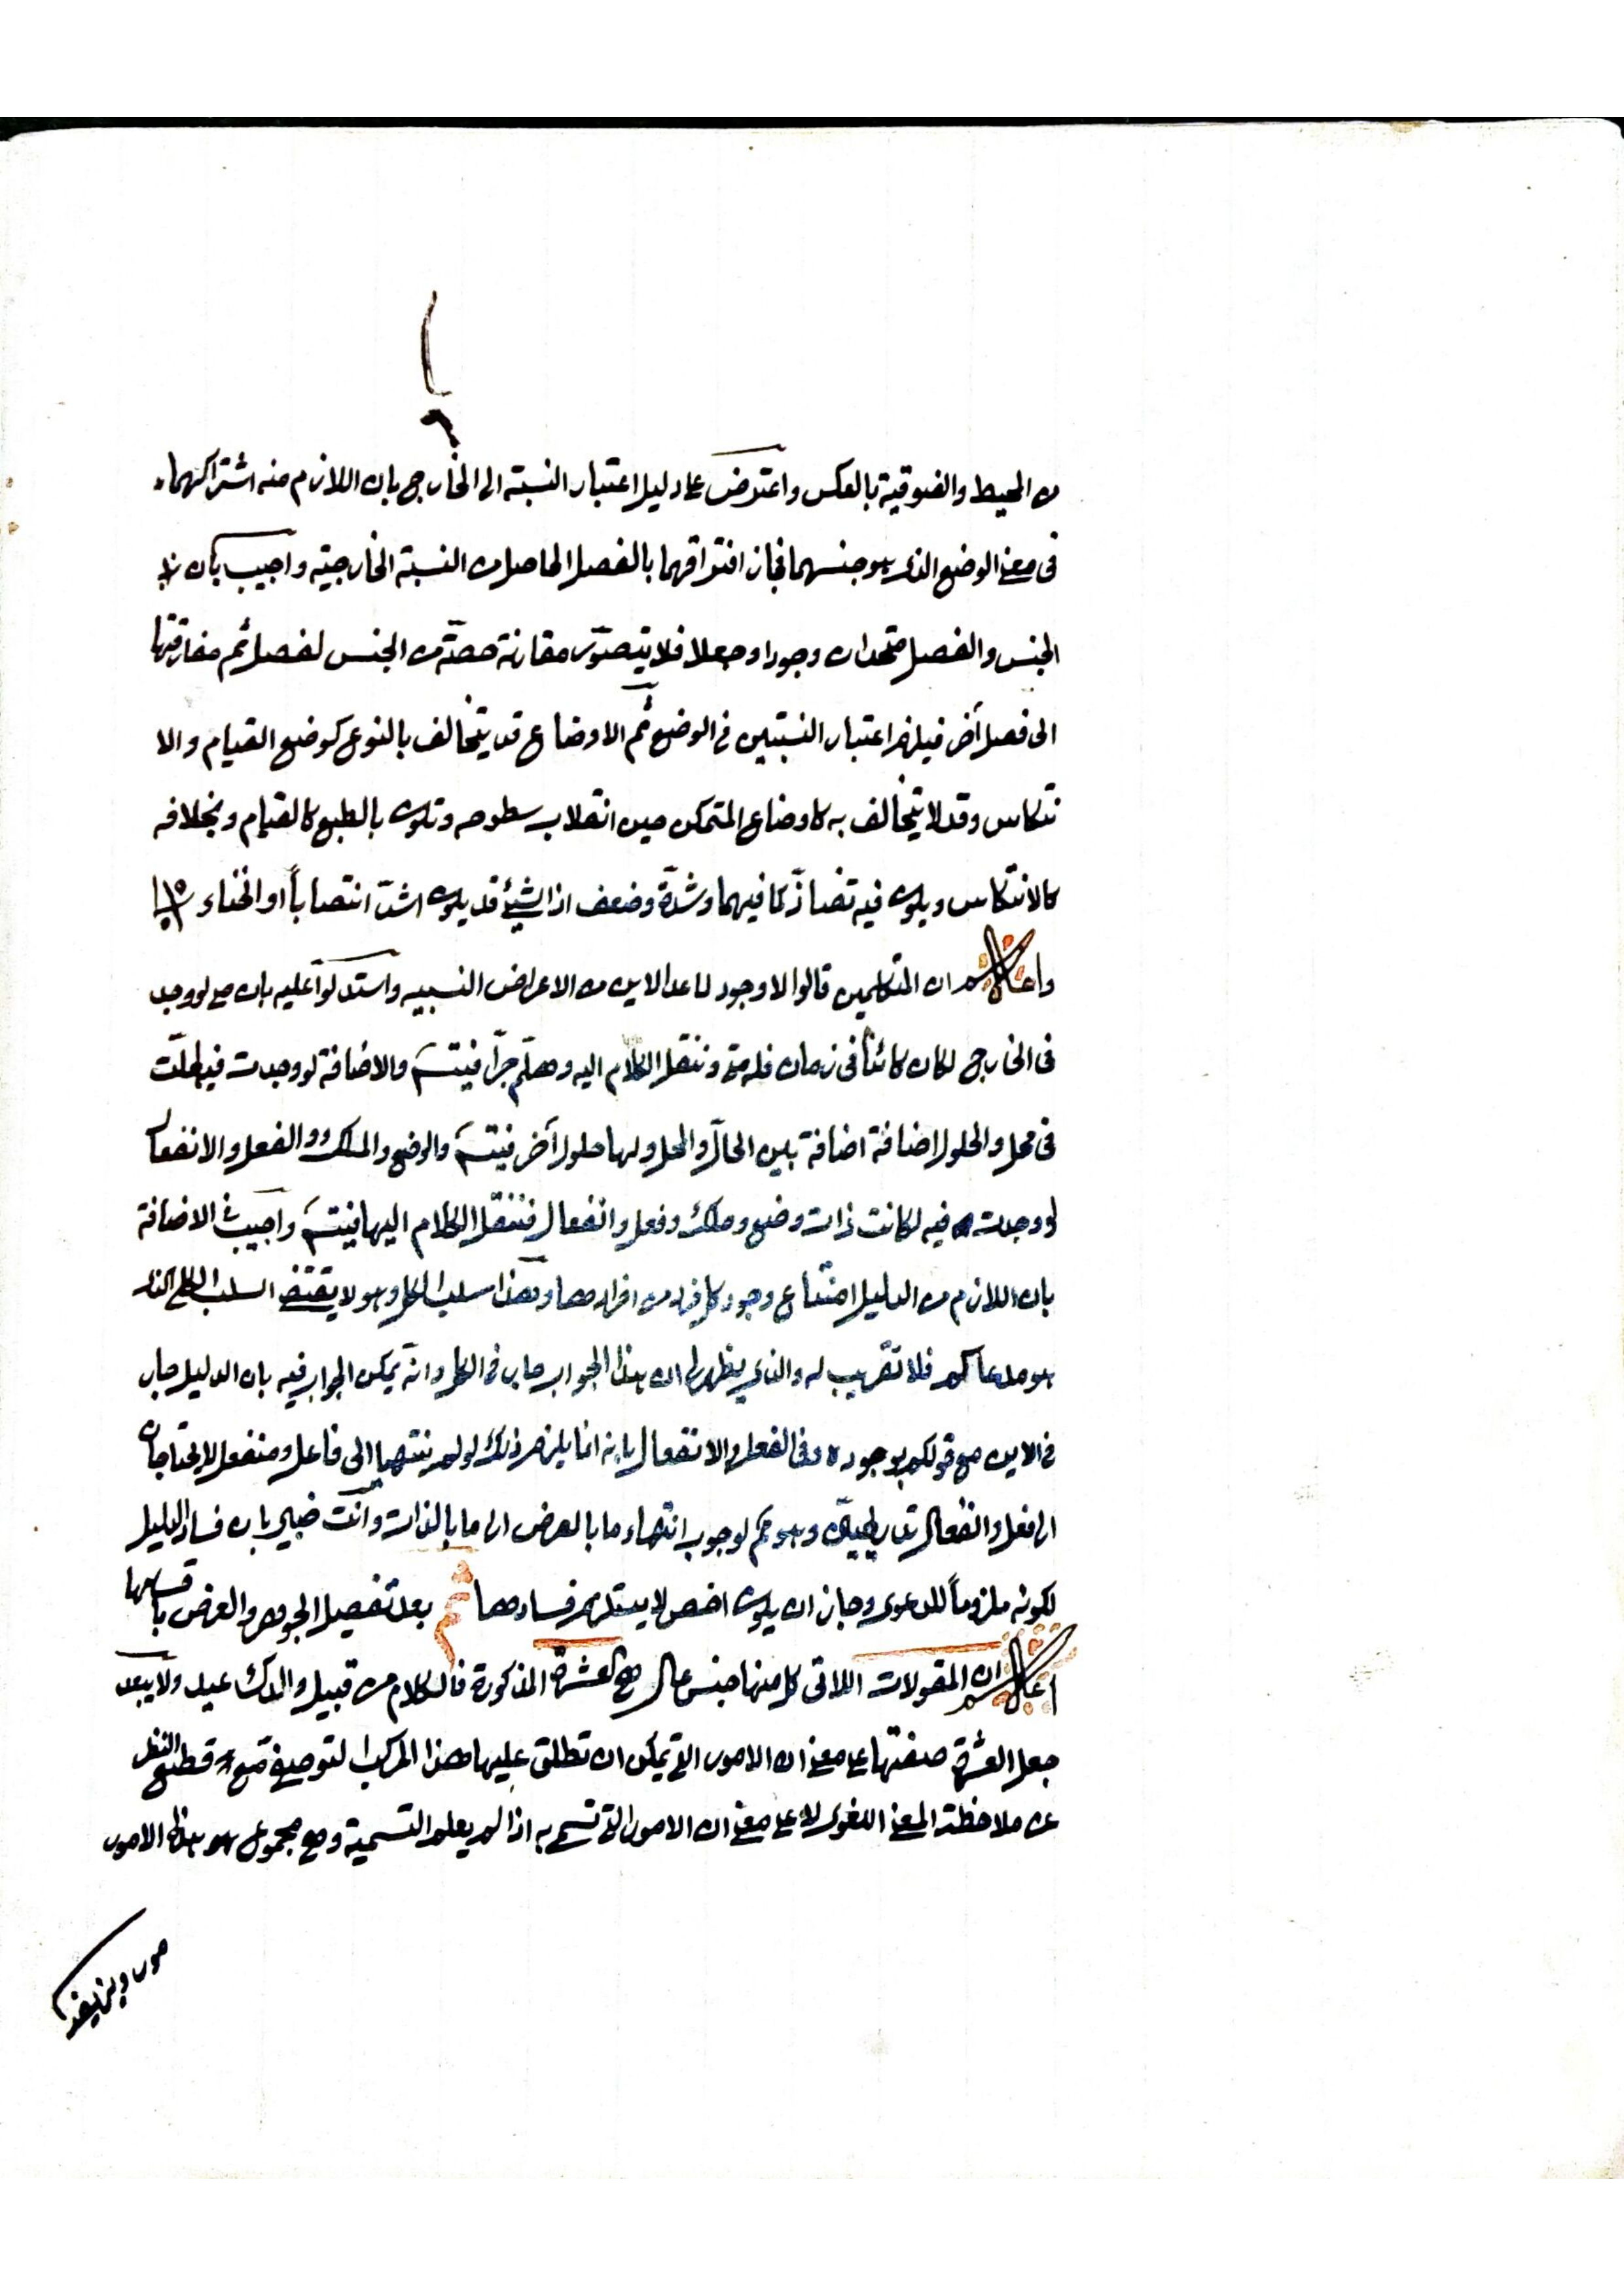 من المحيط والفوقية بالعكس واعترض على دليل اعتبار النسبة الى الخارج بان اللازم منه اشتراكهما
فى معنى الوضع الذى هو جنسهما فجاز افتراقهما بالفصل الحاصل من النسبة الخارجية واجيب بان
الجنس والفصل متحدان وجودا وجعلا فلا يتصوّر مقارنة حصّة من الجنس لفصل ثم مفارقتها
الى فصل آخر فيلزم اعتبار النسبتين فى الوضع ثم الاوضاع قد يتخالف بالنوع كوضع القيام والا
نتكاس وقد لا يتخالف به كاوضاع المتمكن حين انقلاب سطوحه وتكون بالطبع كالقيام وبخلافه
كالانتكاس ويكون فيه تضادّ كما فيهما وشدّة وضعف اذ الشيئ قد يكون اشدّ انتصاباً او انحناء
واعلم ان المتكلمين قالوا لا وجود لما عدا الاين من الاعراض النسبيه واستدلوا عليه بان متى لو وجد
فى الخارج لكان كائناً فى زمان فله متى وننقل الكلام اليه وهلّم جرّا فيتسم والاضافة لو وجدت فيه لحلّت
فى محل والحلول اضافة اضافة بين الحالّ والمحل ولها حلول آخر فيتسم والوضع والملك والفعل والانفعال
لو وجدت فيه لكانت ذات وضع وملك وفعل وانفعال فننقل الكلام اليها فيتسم واجيب فى الاضافة
بان اللازم من الدليل امتناع وجود كل فرد من افرادها وهذا سلب الكل وهو لا يقتضى السلب الكلى الذى
هو مدعاكم فلا تقريب له والذى يظهر لى ان هذا الجواب جار فى الكل وانه يمكن الجواب فيه بان الدليل جار
فى الاين مع قولكم بوجوده وفى الفعل والانفعال بانه انما يلزم ذلك لو لم ينتهيا الى فاعل ومنفعل لا يحتاجان
الى فعل وانفعال تدريجيين وهو ثم لوجوب انتهاء ما بالعرض الى ما بالذات وانت خبير بان فساد الدليل
لكونه ملزوماً للدعوى وجاز ان يكون اخص لا يستلزم فسادها ثم بعد تفصيل الجوهر والعرض باقسامها
اعلم ان المقولات اللاتى كل منها جنس عال هى العشرة المذكورة فالكلام من قبيل والدك عبد ولا يبعد
جعل العشرة صفتها على معنى ان الامور التى يمكن ان تطلق عليها هذا المركب التوصيفى مع قطع النظر
عن ملاحظة المعنى اللغوى لا على معنى ان الامور التى تسمى به اذا لم يعلم التسمية وهى مجموع هو هذه الامور